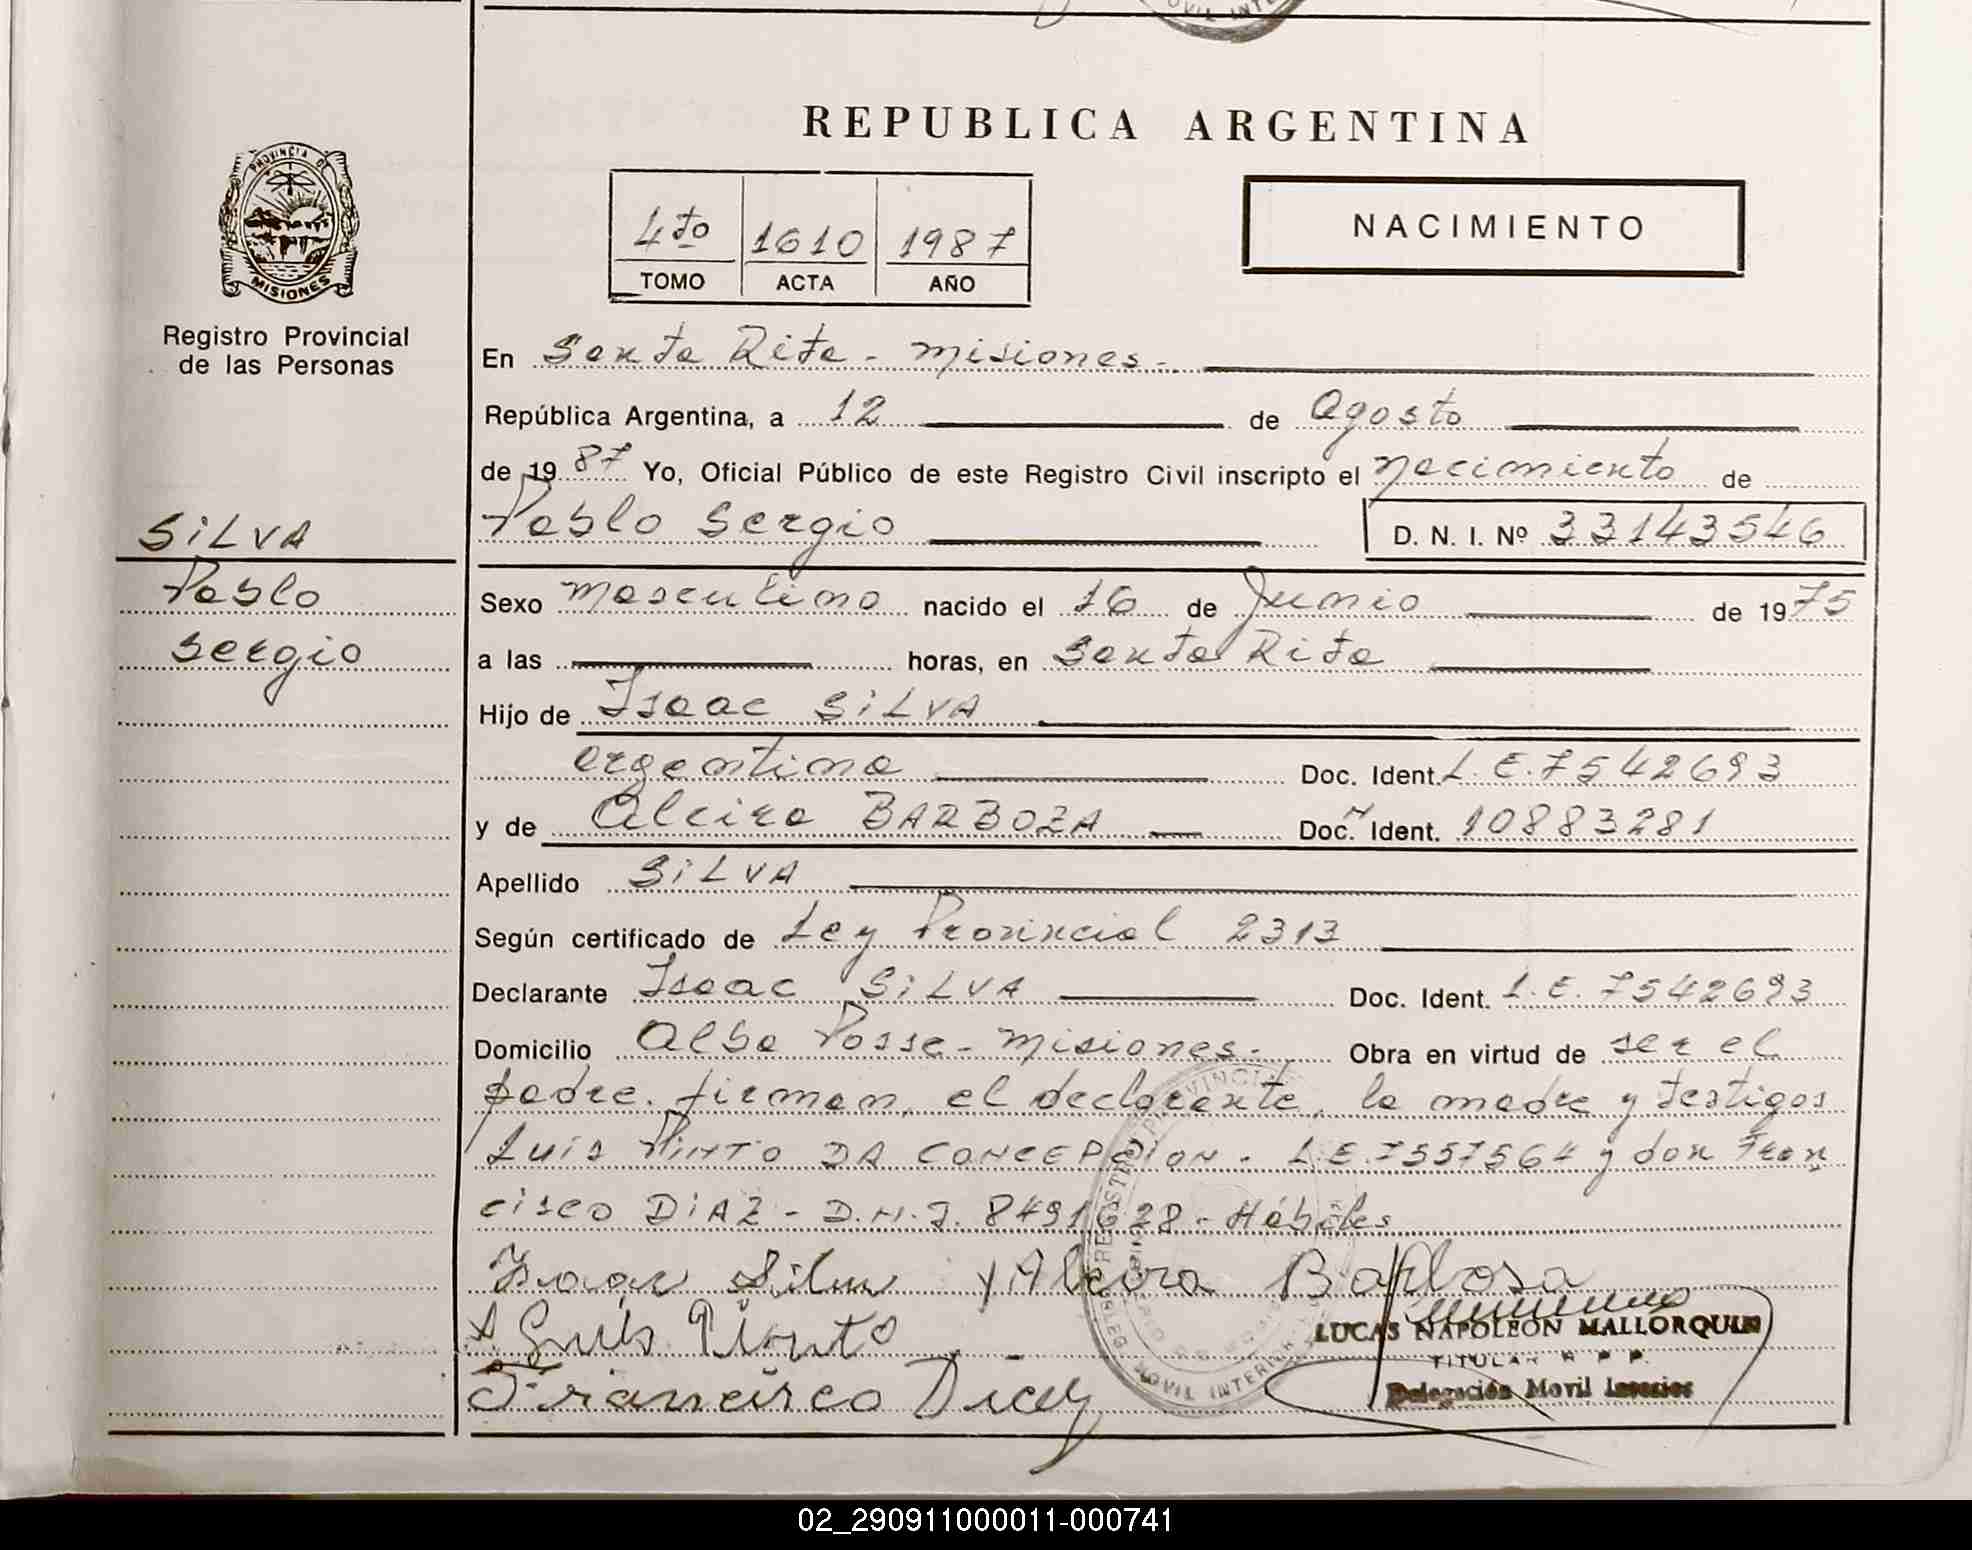 REPUBLICA ARGENTINA
PROVINCIA DE
MISIONES
Registro Provincial
de las Personas
4to 1610 1987
TOMO ACTA AÑO
NACIMIENTO
En Santa Rita - Misiones -
República Argentina, a 12 de Agosto
de 1987 Yo, Oficial Público de este Registro Civil inscripto el nacimiento de
Pablo Sergio D. N. I. Nº 33143546
SILVA
Pablo
Sergio
Sexo masculino nacido el 16 de Junio de 1975
a las horas, en Santa Rita
Hijo de Isaac SILVA
argentino Doc. Ident. L.E. 7542693
y de Alcira BARBOZA Doc. Ident. 10883281
Apellido SILVA
Según certificado de Ley Provincial 2313
Declarante Isaac SILVA Doc. Ident. L.E. 7542693
Domicilio Alba Posse - Misiones - Obra en virtud de ser el
padre. firman, el declarante, la madre y testigos
Luis PINTO DA CONCEPCION - L.E. 7557564 y don Fran
cisco DIAZ - D.N.I. 8491628 - Hábiles
Isaac Silva y Alcira Barbosa
Luis Pinto
LUCAS NAPOLEON MALLORQUIN
TITULAR R P P.
Delegación Movil Interior
Francisco Diaz
02_290911000011-000741